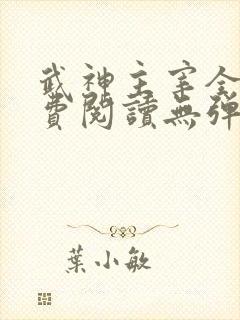 武神主宰全
費閱讀無彈
葉小敏